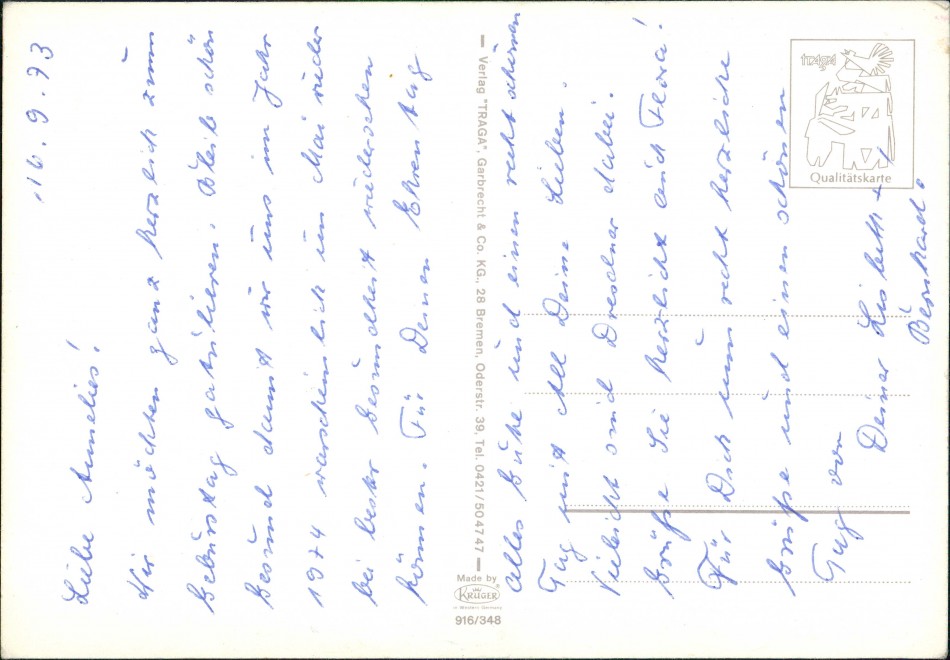 16.9.73
Liebe Annelies!
Wir möchten ganz herzlich zum
Gebürstag gatulieren. Bleib schön
Gesund damit wir uns im Jahr
1974 warscheinlich im Mai wieder
bei bester Gesundheit wiedersehen
können. Für Deinen Ehrentag
Alles Gute und einen recht schönen
Tag mit All Deine Lieben.
Vieleicht sind Dresdner dabei.
Grüße Sie herzlicht auch Flora!
Für Dich nun recht herzliche
Grüße und einen schönen
Tag von
Deiner Lisbeth +
Bernhard.
Verlag "TRAGA", Garbrecht & Co. KG., 28 Bremen, Oderstr. 39, Tel. 0421/504747
Made by
KRÜGER
Western Germany
916/348
TRAGA
Qualitätskarte